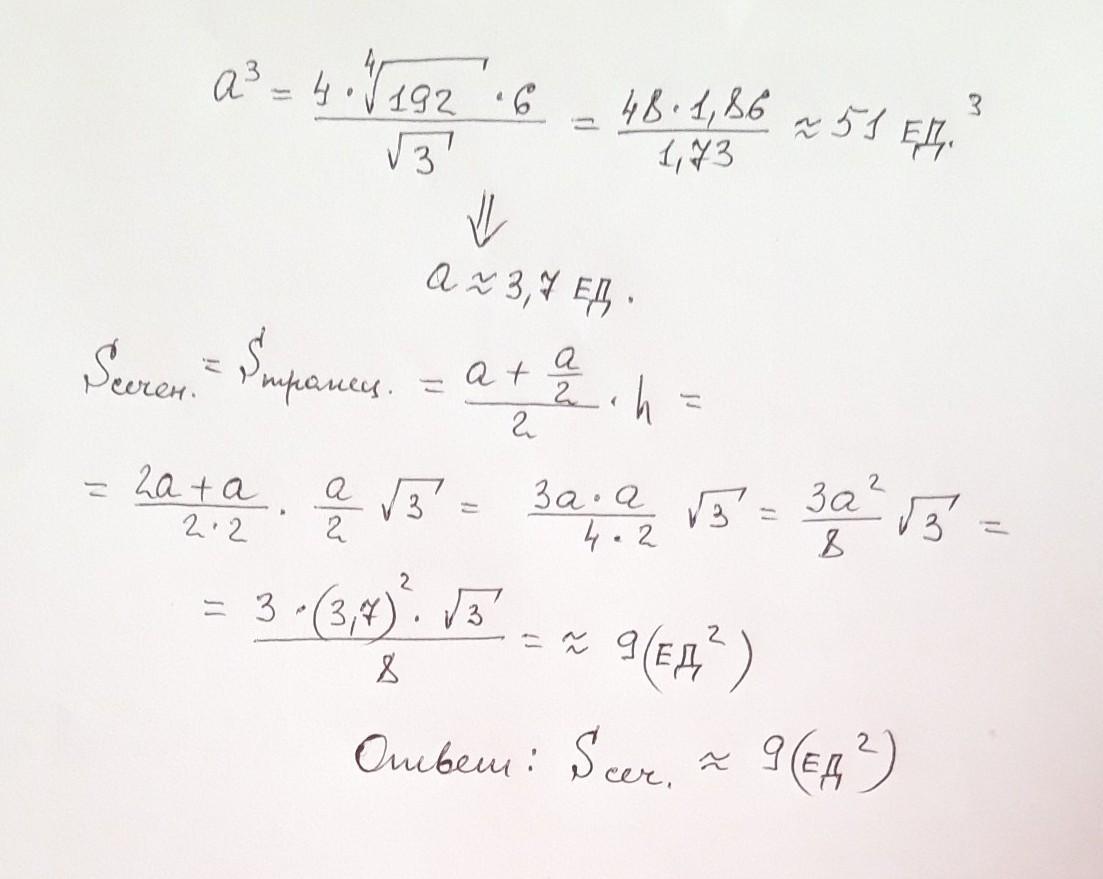 a³ = 4 · ⁴√192 · 6 / √3 = 48 · 1,86 / 1,73 ≈ 51 ЕД.³
⇓
a ≈ 3,7 ЕД.
Sсечен. = Sтрапец. = (a + a/2) / 2 · h =
= (2a + a) / (2 · 2) · a/2 √3 = (3a · a) / (4 · 2) √3 = 3a²/8 √3 =
= 3 · (3,7)² · √3 / 8 = ≈ 9 (ЕД²)
Ответ: Sсеч. ≈ 9 (ЕД²)